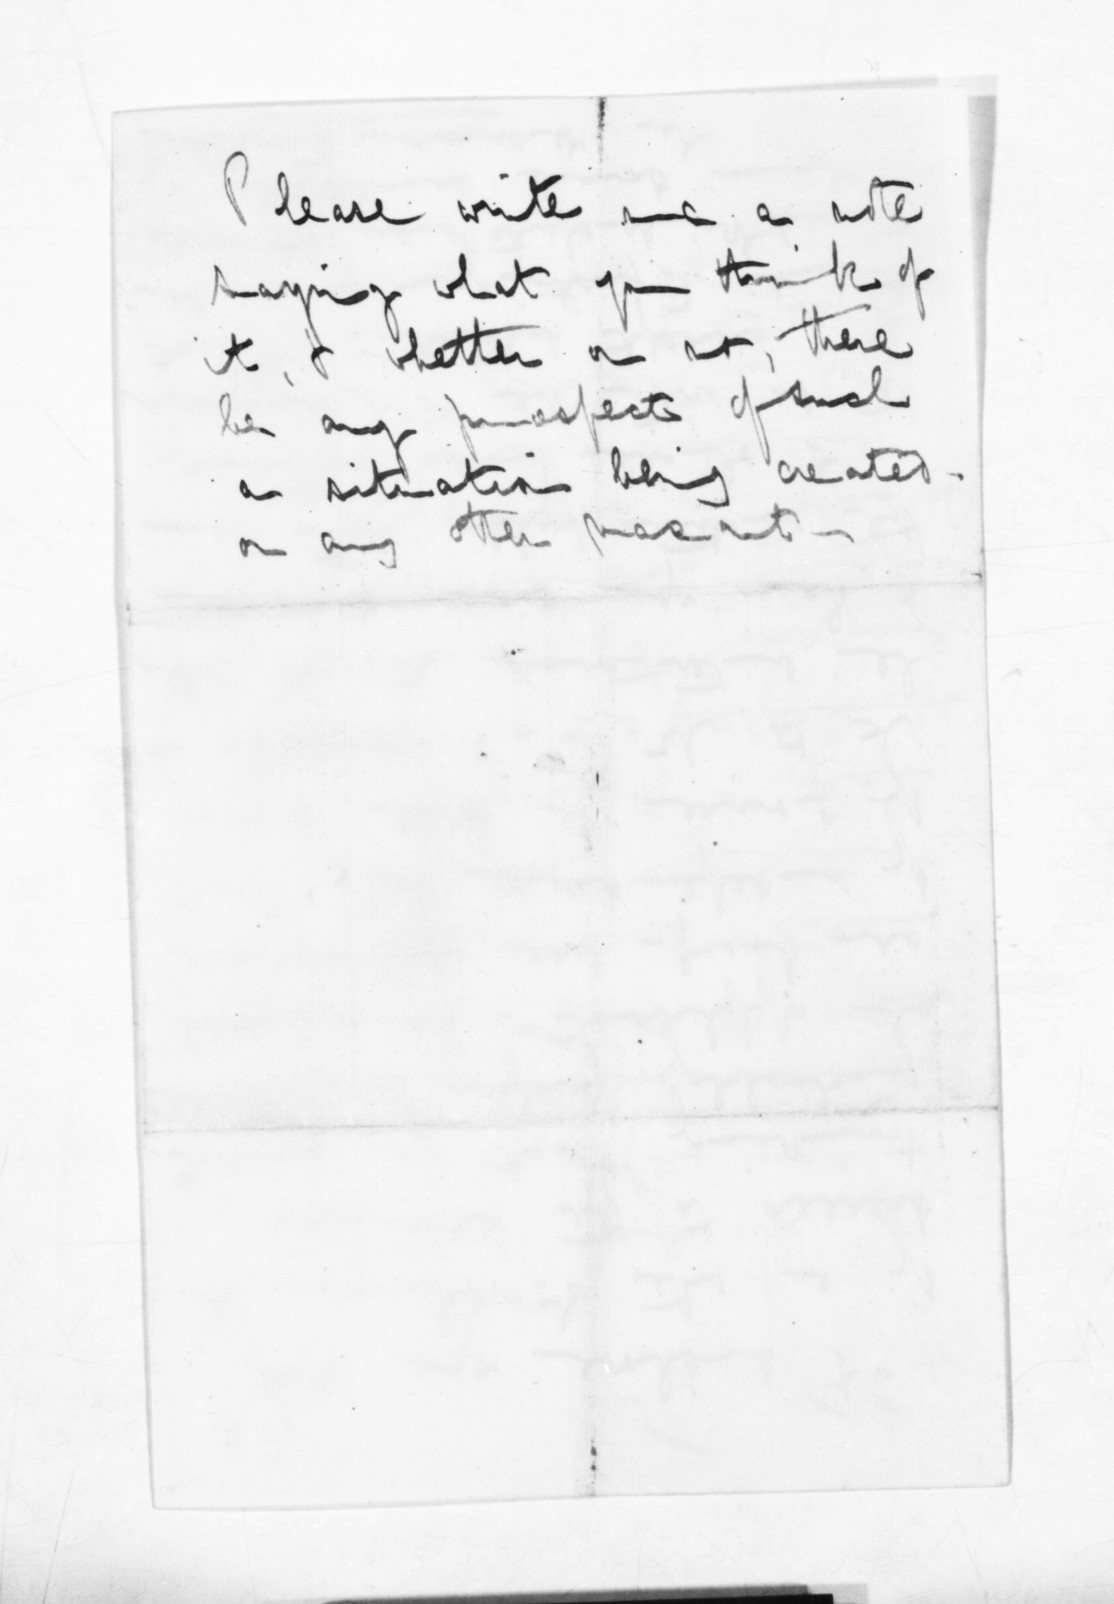 Please write me a note
saying what you think of
it, & whether or not, there
be any prospect of such
a situation being created -
or any other vacant -